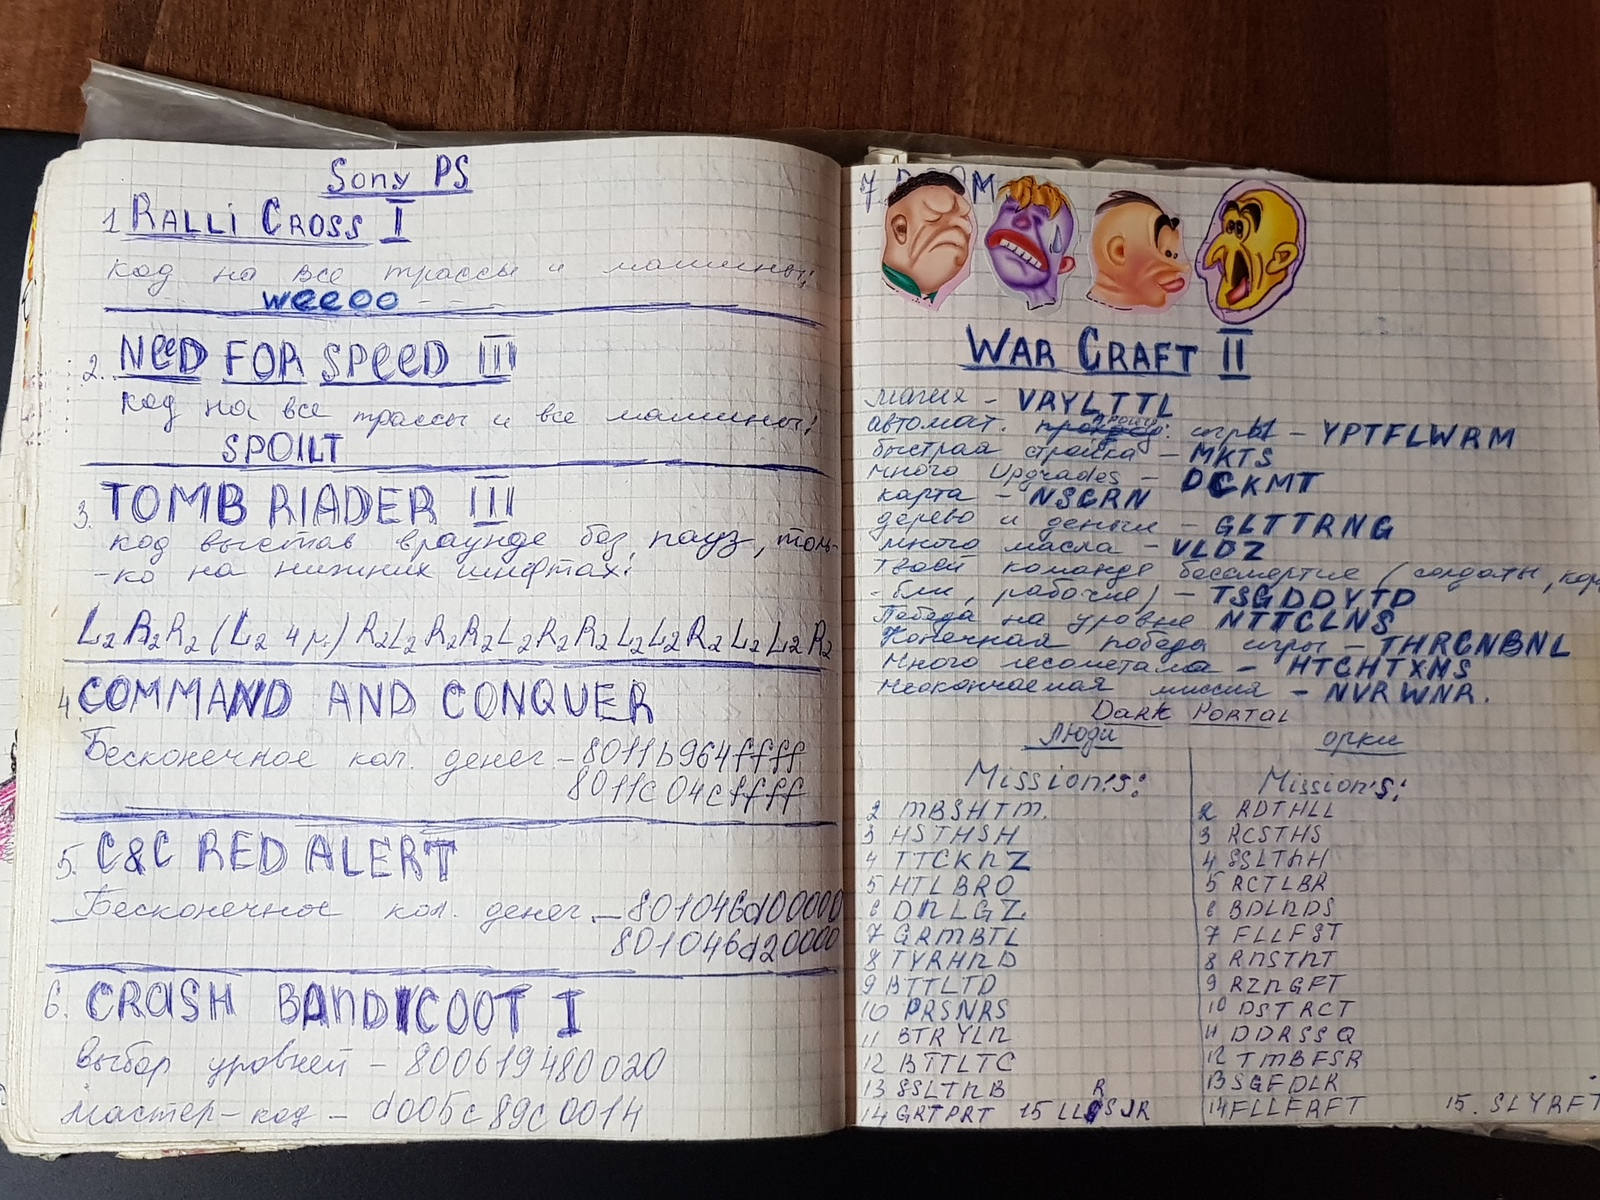 Sony PS
1 RALLi CROSS I
код на все трассы и машины:
weeoo
2. NeeD FOR SPeeD III
код на все трассы и все машины!
SPOILT
3. TOMB RIADER III
код выстав в раунде без пауз, толь-
-ко на нижних шифтах:
L2 R2 R2 (L2 4 р.) R2 L2 R2 R2 L2 R2 R2 L2 L2 R2 L2 L2 R2
4. COMMAND AND CONQUER
Бесконечное кол. денег - 8011b964ffff
8011c04cffff
5. C&C RED ALERT
Бесконечное кол. денег - 801046d00000
801046d20000
6. CRASH BANDICOOT I
Выбор уровней - 800619480020
Мастер-код - d005c89c0014
7. DOOM
WAR CRAFT II
магия - VRYLTTL
автомат. игры - YPTFLWRM
быстрая стройка - MKTS
много Upgrades - DCKMT
карта - NSCRN
дерево и деньги - GLTTRNG
много масла - VLDZ
твоей команде бессмертие (солдаты, кор
-бли, рабочие) - TSGDDYTD
Победа на уровне NTTCLNS
Конечная победа игры - THRCNBNL
Много лесометала - HTCHTXNS
Неокончаемая миссия - NVRWNR.
Dark PORTAL
Люди орки
Mission:s: Mission's:
2 MBSHTM. 2 RDTHLL
3 HSTHSH 3 RCSTHS
4 TTCKNZ 4 SSLTNH
5 HTLBRO 5 RCTLBR
6 DNLGZ 6 BDLNDS
7 GRMBTL 7 FLLFST
8 TYRHND 8 RNSTNT
9 BTTLTD 9 RZNGFT
10 PRSNRS 10 DSTRCT
11 BTRYLN 11 DDRSSQ
12 BTTLTC 12 TMBFSR
13 SSLTNB 13 SGFDLR
14 GRTPRT 14 FLLFRFT 15. SLYRFT